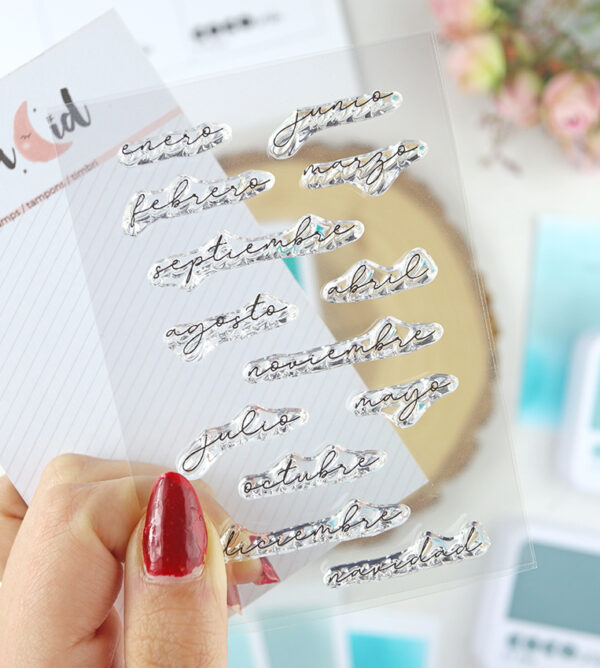 enero
junio
febrero
marzo
septiembre
abril
agosto
noviembre
mayo
julio
octubre
diciembre
navidad
mps / tampons / timbri